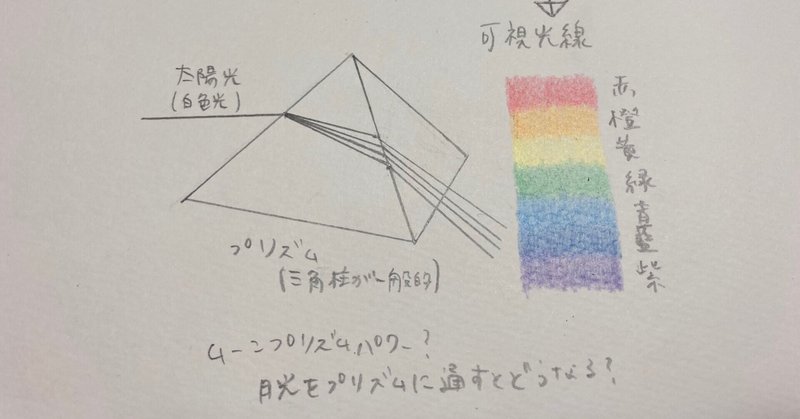 可視光線
太陽光
(白色光)
赤
橙
黄
緑
青
藍
紫
プリズム
(三角柱が一般的)
ムーンプリズムパワー?
月光をプリズムに通すとどうなる?